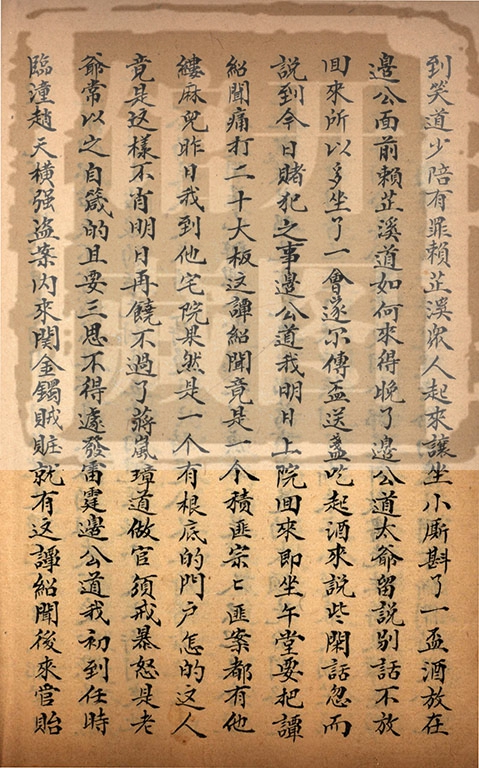 到笑道少陪有罪賴芷溪衆人起來讓坐小厮斟了一盃酒放在
邉公面前賴芷溪道如何來得晚了邉公道太爺留説别話不放
囬來所以多坐了一會遂尔傳盃送盞吃起酒來説些閑話忽而
説到今日賭犯之事邉公道我明日上院囬來即坐午堂要把譚
紹聞痛打二十大板这譚紹聞竟是一个積匪宗〻匪案都有他
縷麻兒昨日我到他宅院果然是一个有根底的門户怎的这人
竟是这樣不肖明日再饒不過了蔣嵐璋道做官須戒暴怒是老
爺常以之自箴的且要三思不得遽發雷霆邉公道我初到任時
臨潼趙天横强盜案内來関金鐲賊賍就有这譚紹聞後來官貽